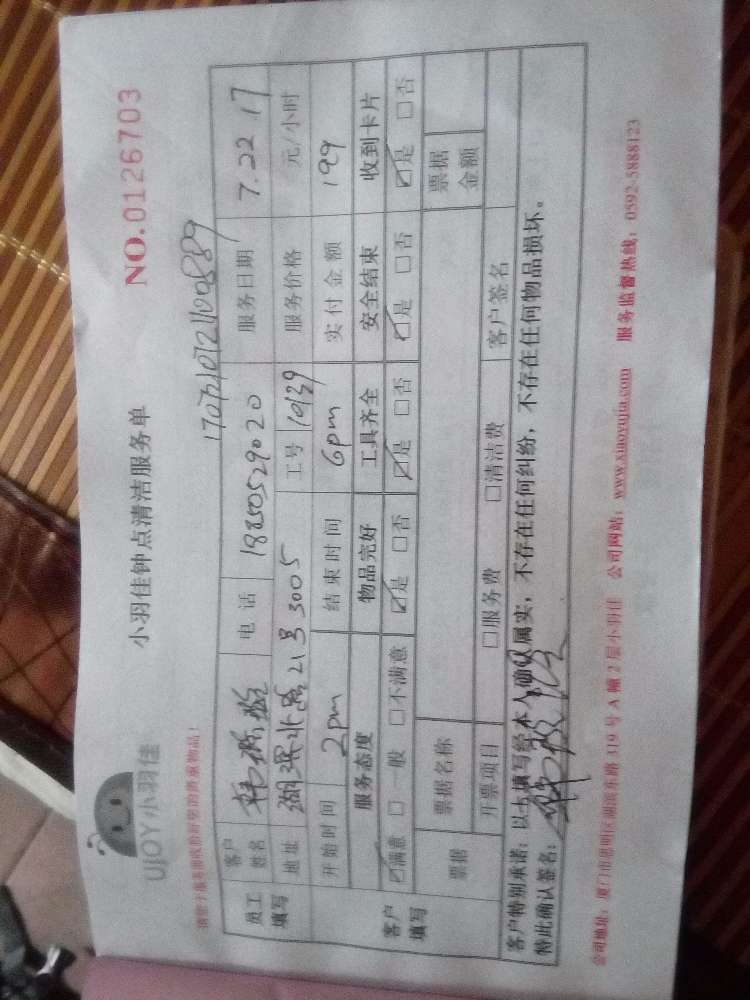 UJOY小羽佳
小羽佳钟点清洁服务单
NO.0126703
请您于服务前收拾好您的贵重物品!
员工填写
客户姓名
电话 18250529020
服务日期 7.22.17
地址 湖滨北路21号3005
工号 10139
服务价格 元/小时
开始时间 2pm
结束时间 6pm
实付金额 199
客户填写
服务态度 物品完好 工具齐全 安全结束 收到卡片
☑满意 □一般 □不满意 ☑是 □否 ☑是 □否 ☑是 □否 ☑是 □否
票据
票据名称
票据金额
开票项目 □服务费 □清洁费 客户签名
客户特别承诺:以上填写经本人确认属实,不存在任何纠纷,不存在任何物品损坏。
特此确认签名:
公司地址:厦门市思明区湖滨东路319号A幢2层小羽佳 公司网站:www.xiaoyujia.com 服务监督热线:0592-5888123